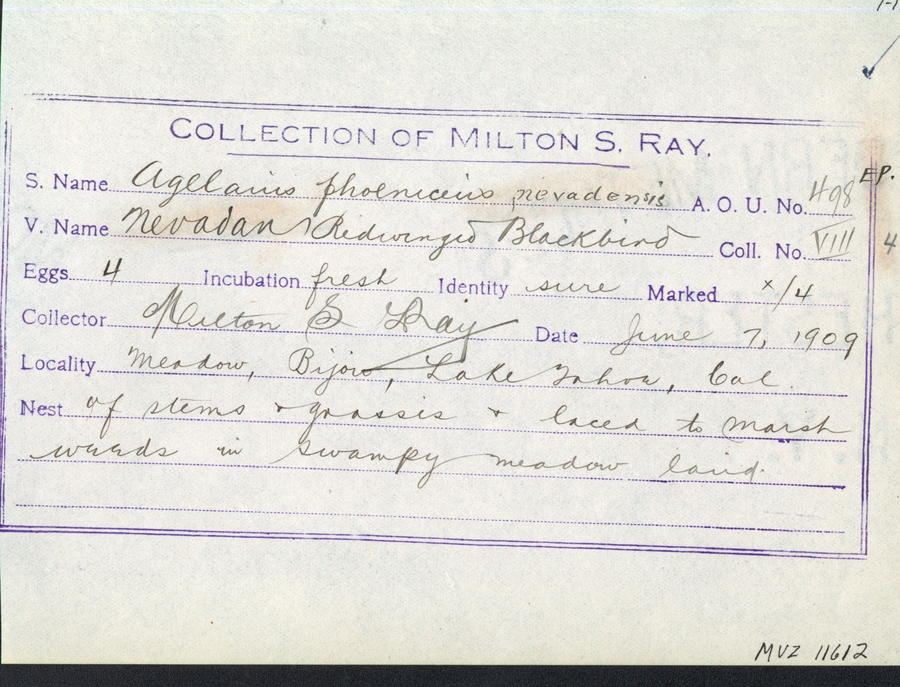 COLLECTION OF MILTON S. RAY.
S. Name Agelaius phoeniceus nevadensis A. O. U. No. 498 EP.
V. Name Nevadan Redwinged Blackbird Coll. No. VIII 4
Eggs 4 Incubation fresh Identity sure Marked x/4
Collector Milton S Ray Date June 7, 1909
Locality Meadow, Bijou, Lake Tahoe, Cal.
Nest of stems & grasses & laced to marsh
weeds in swampy meadow land.
MVZ 11612